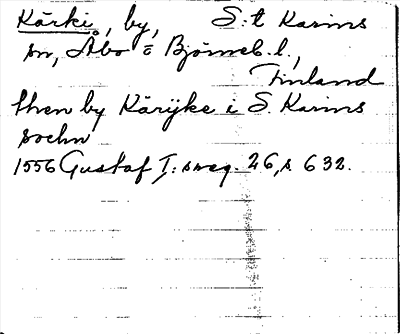 Kärki, by, S:t Karins
sn, Åbo o Björneb. l.,
Finland
then by Kärijke i S. Karins
sochn
1556 Gustaf I: s reg. 26, s. 632.